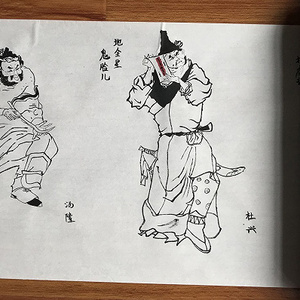 地全星
鬼脸儿
杜兴
汤隆